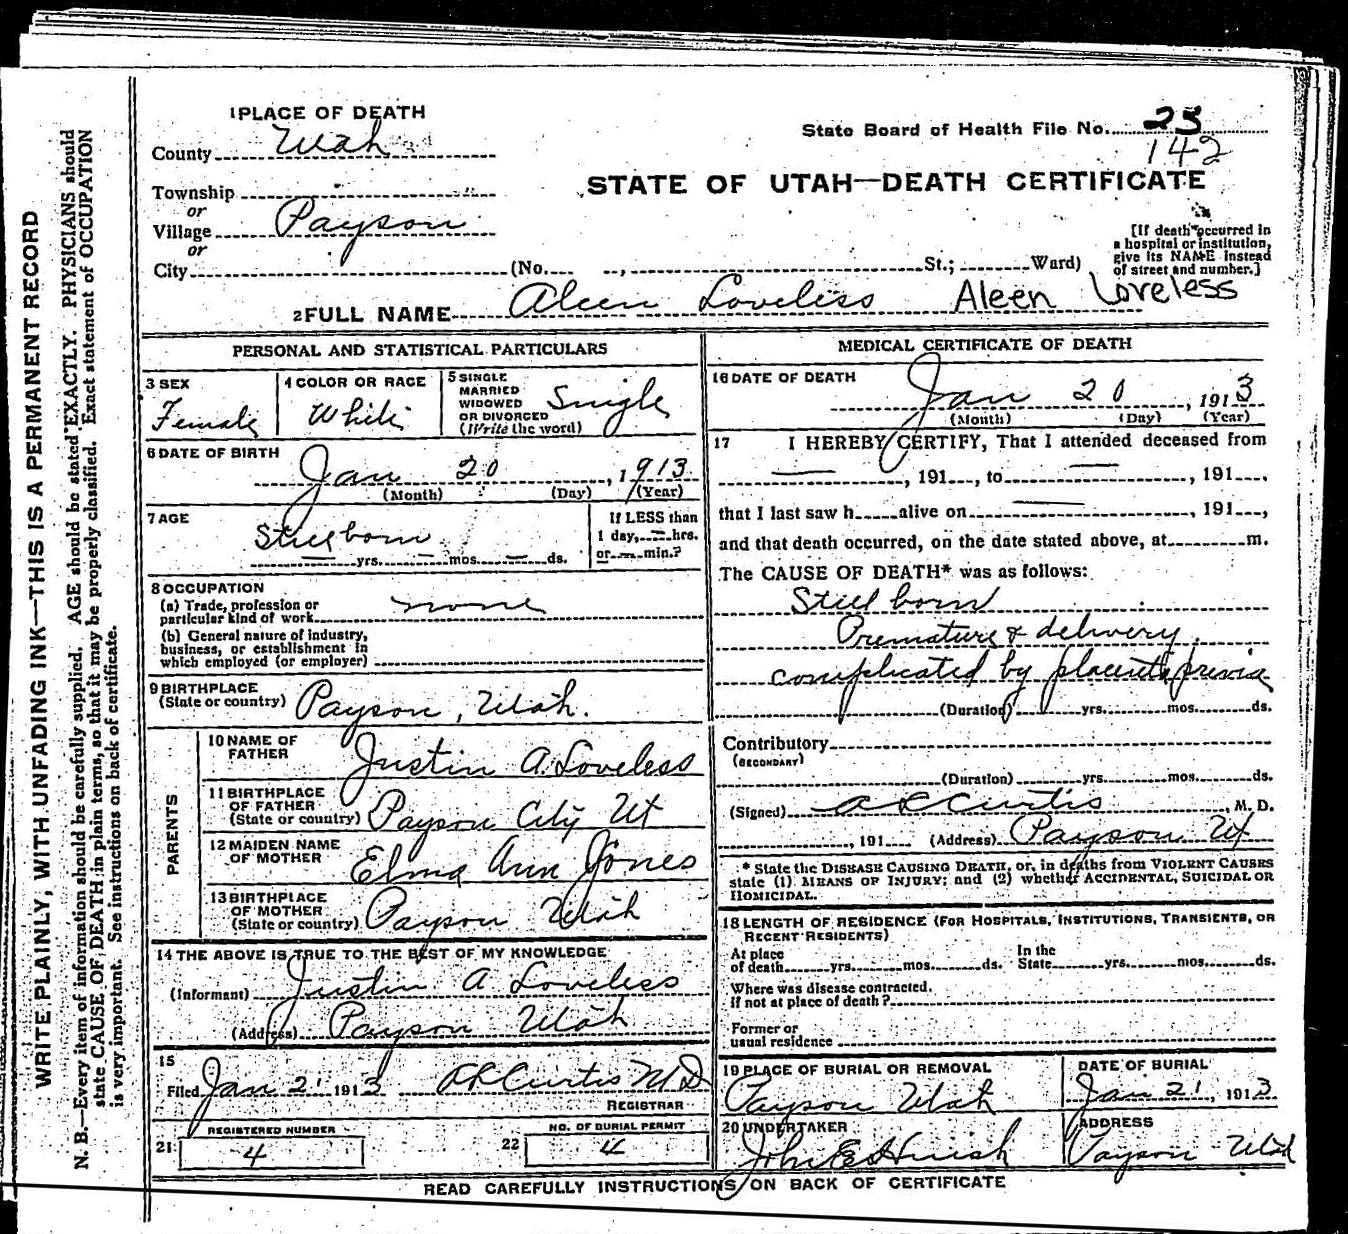 WRITE PLAINLY, WITH UNFADING INK—THIS IS A PERMANENT RECORD
N. B.—Every item of information should be carefully supplied. AGE should be stated EXACTLY. PHYSICIANS should
state CAUSE OF DEATH in plain terms, so that it may be properly classified. Exact statement of OCCUPATION
is very important. See instructions on back of certificate.
1 PLACE OF DEATH
County Utah
Township
or
Village Payson
or
City (No. , St.; Ward)
State Board of Health File No. 23
142
STATE OF UTAH—DEATH CERTIFICATE
[If death occurred in
a hospital or institution,
give its NAME instead
of street and number.]
2 FULL NAME Aleen Loveless Aleen Loveless
PERSONAL AND STATISTICAL PARTICULARS
3 SEX
Female
4 COLOR OR RACE
White
5 SINGLE
MARRIED
WIDOWED
OR DIVORCED
(Write the word)
Single
6 DATE OF BIRTH
Jan 20, 1913
(Month) (Day) (Year)
7 AGE
Stillborn
— yrs. — mos. — ds.
If LESS than
1 day, — hrs.
or — min.?
8 OCCUPATION
(a) Trade, profession or
particular kind of work none
(b) General nature of industry,
business, or establishment in
which employed (or employer)
9 BIRTHPLACE
(State or country) Payson, Utah.
PARENTS
10 NAME OF
FATHER Justin A. Loveless
11 BIRTHPLACE
OF FATHER
(State or country) Payson City Ut
12 MAIDEN NAME
OF MOTHER Elma Ann Jones
13 BIRTHPLACE
OF MOTHER
(State or country) Payson Utah
14 THE ABOVE IS TRUE TO THE BEST OF MY KNOWLEDGE
(Informant) Justin A Loveless
(Address) Payson Utah
15
Filed Jan 21 1913 A L Curtis M D
REGISTRAR
21 REGISTERED NUMBER
4
22 NO. OF BURIAL PERMIT
4
MEDICAL CERTIFICATE OF DEATH
16 DATE OF DEATH
Jan 20, 1913
(Month) (Day) (Year)
17 I HEREBY CERTIFY, That I attended deceased from
—, 191 , to —, 191 ,
that I last saw h alive on —, 191 ,
and that death occurred, on the date stated above, at m.
The CAUSE OF DEATH* was as follows:
Still born
Premature & delivery.
complicated by placenta previa
(Duration) yrs. mos. ds.
Contributory
(SECONDARY)
(Duration) yrs. mos. ds.
(Signed) A L Curtis, M. D.
, 191 (Address) Payson Ut
* State the DISEASE CAUSING DEATH, or, in deaths from VIOLENT CAUSES
state (1) MEANS OF INJURY; and (2) whether ACCIDENTAL, SUICIDAL OR
HOMICIDAL.
18 LENGTH OF RESIDENCE (FOR HOSPITALS, INSTITUTIONS, TRANSIENTS, OR
RECENT RESIDENTS)
At place
of death yrs. mos. ds. In the
State yrs. mos. ds.
Where was disease contracted,
if not at place of death?
Former or
usual residence
19 PLACE OF BURIAL OR REMOVAL
Payson Utah
DATE OF BURIAL
Jan 21, 1913
20 UNDERTAKER
John E Huish
ADDRESS
Payson Utah
READ CAREFULLY INSTRUCTIONS ON BACK OF CERTIFICATE